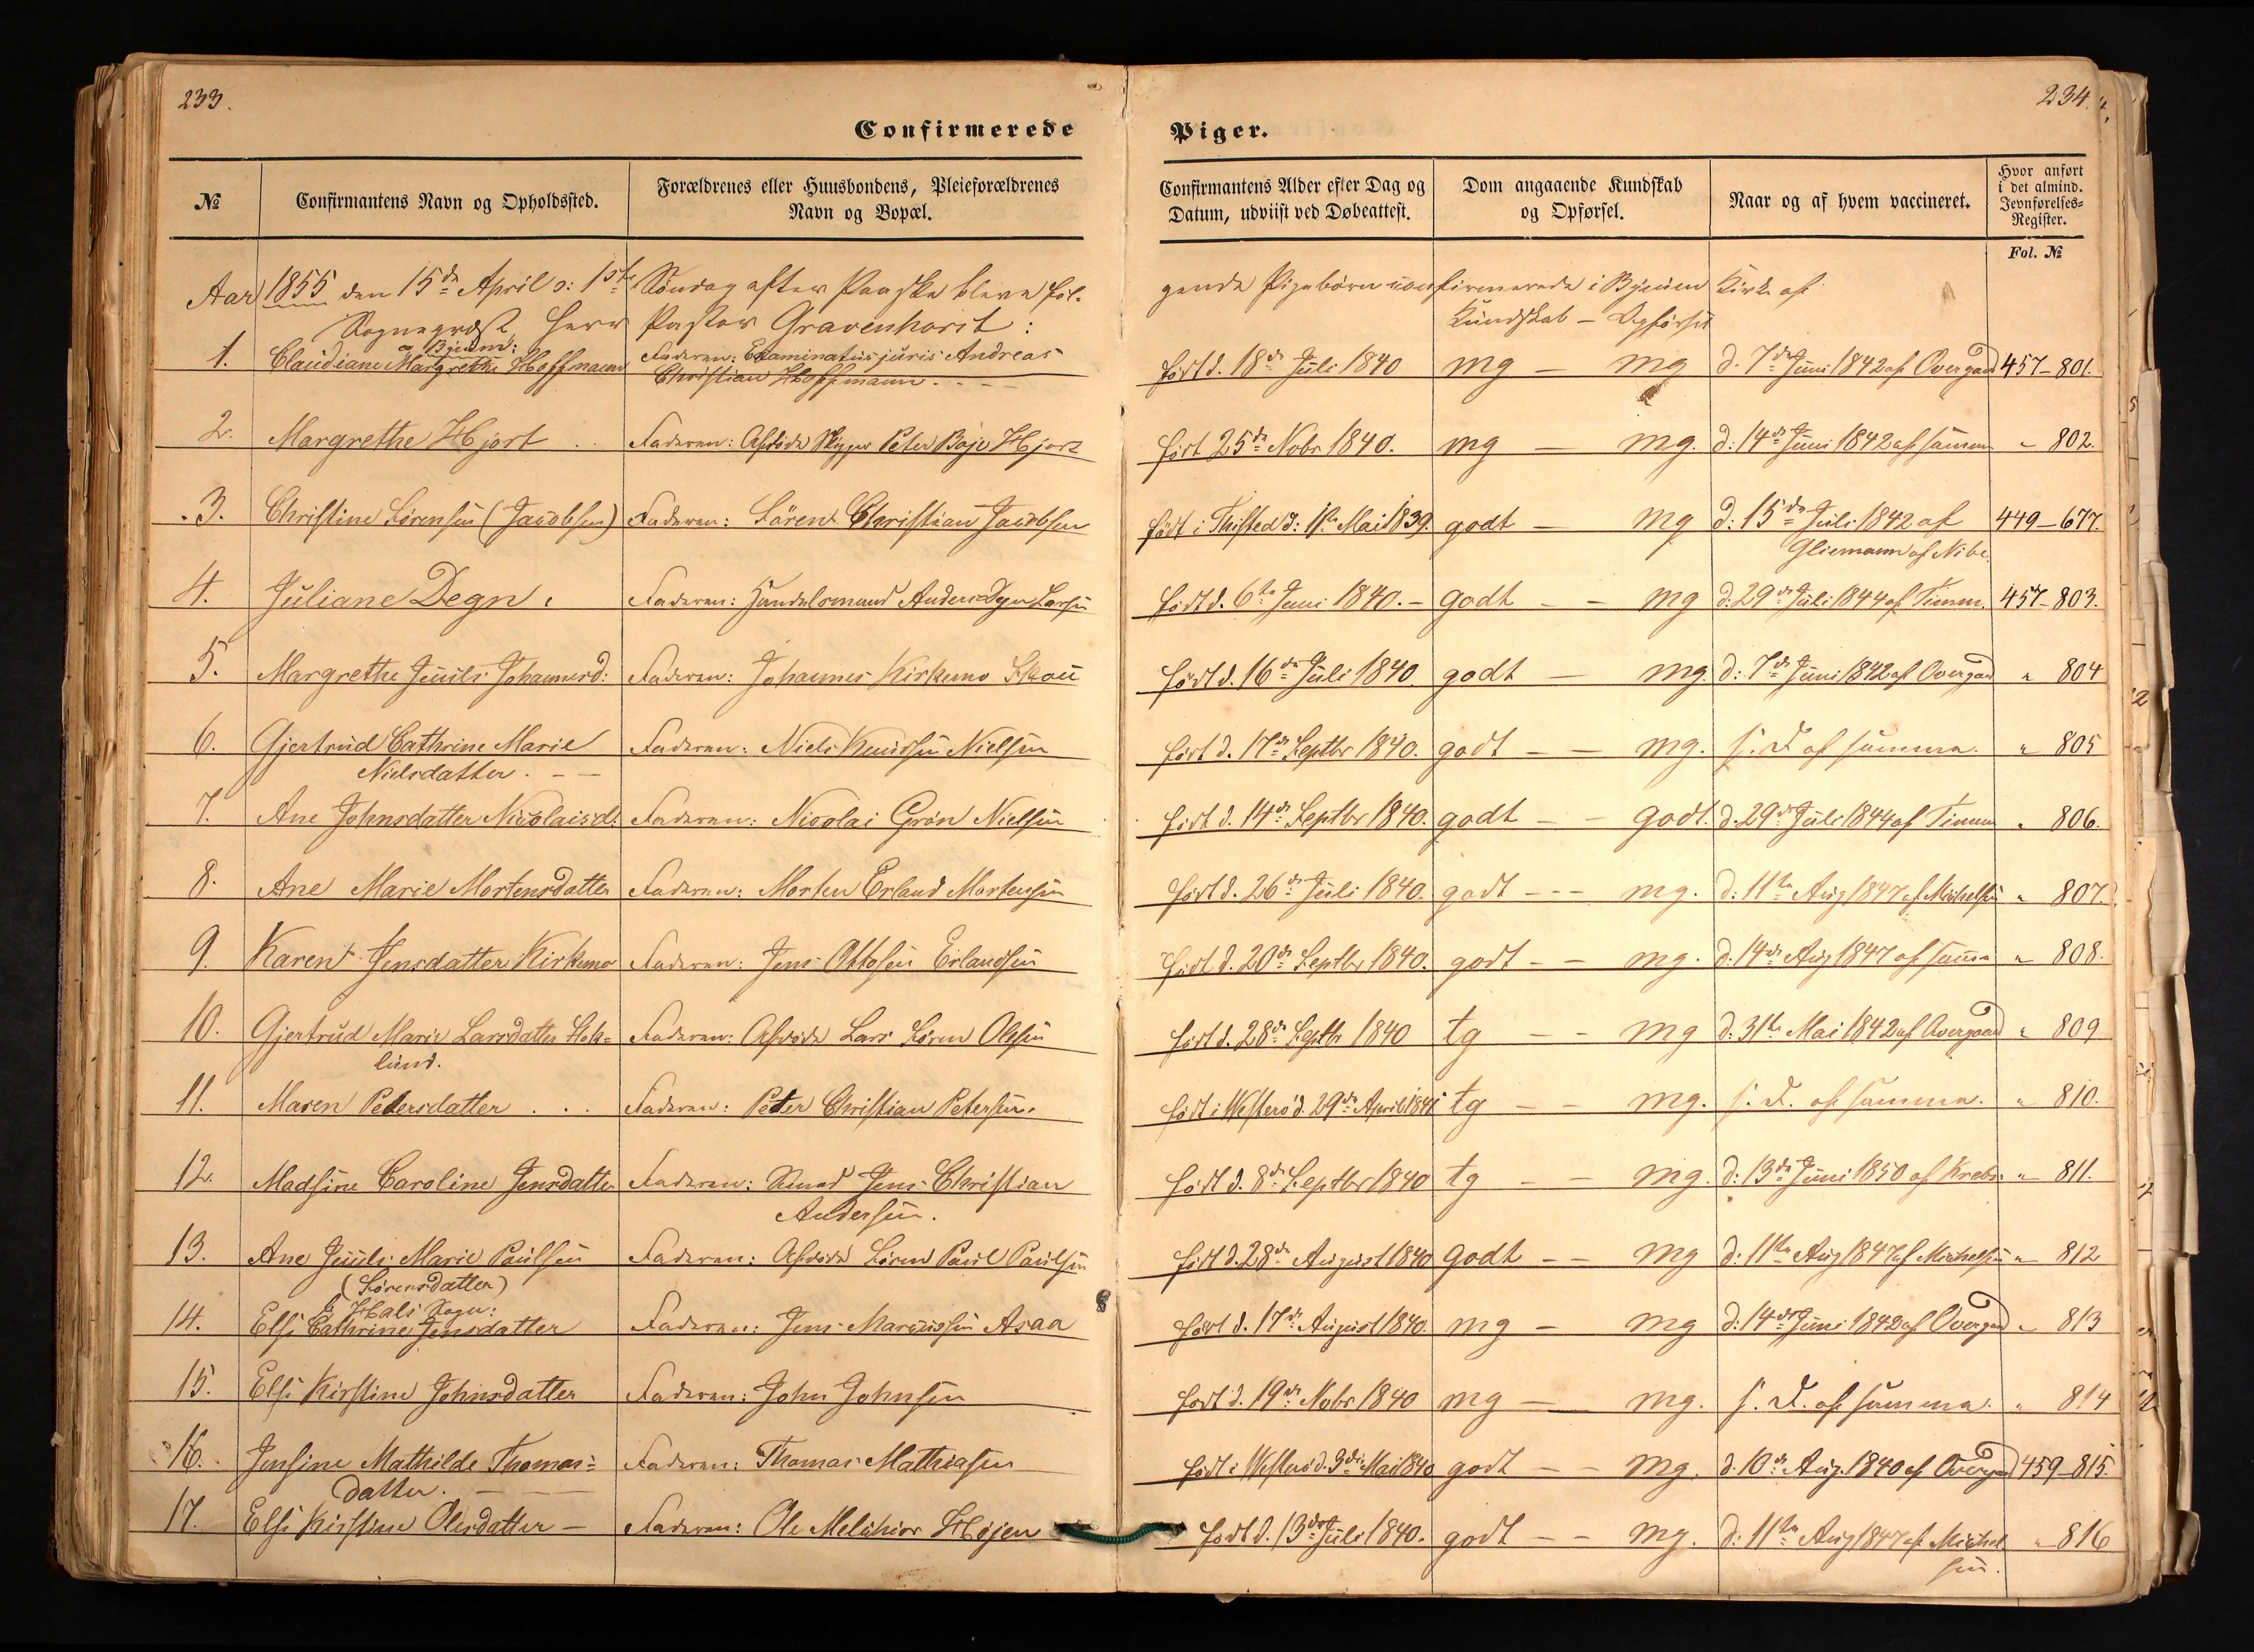 233.
234.
Confirmerede Piger.
№
Confirmantens Navn og Opholdssted.
Forældrenes eller Huusbondens, Pleieforældrenes
Navn og Bopæl.
Confirmantens Alder efter Dag og
Datum, udviist ved Døbeattest.
Dom angaaende Kundskab
og Opførsel.
Naar og af hvem vaccineret.
Hvor anført
i det almind.
Jevnførelses=
Register.
Fol. №
Aar 1855 den 15de April o: 1ste Søndag efter Paaske bleve föl-
gende Pigebörn confirmerede i Byrum Kirke af
Sognepræst, Herr Pastor Gravenhorst:
Kundskab — Opförsel
a, Byrum:
1. Claudiane Margrethe Hoffmann Faderen: Examinatus juris Andreas født d. 18de Juli 1840 mg — mg d. 7de Juni 1842 af Overgaard 457—801.
Christian Hoffmann. - - -
2. Margrethe Hjort . . Faderen: Afdøde Skipper Peter Boje Hjort født 25de Nobr 1840. mg — mg. d: 14de Juni 1842 af samme " 802.
3. Christine Sørensen (Jacobsen) Faderen: Sören Christian Jacobsen født i Thisted d: 1ste Mai 1839. godt — mg d: 15de Juli 1842 af 449—677.
Gliemann af Nibe.
4. Juliane Degn. Faderen: Handelsmand Anders Degn Larsen født d. 6te Juni 1840. — godt — — mg d: 29de Juli 1844 af Timm. 457—803.
5. Margrethe Juuls Johannesd: Faderen: Johannes Kirkemo Skou født d. 16de Juli 1840. godt — mg. d: 7de Juni 1842 af Overgaard " 804
6. Gjertrud Cathrine Marie Faderen: Niels Knudsen Nielsen født d. 17de Septbr 1840. godt — — mg. s. D. af samme. " 805
Nielsdatter. — —
7. Ane Johnsdatter Nicolaisd: Faderen: Nicolai Grøn Nielsen født d. 14de Septbr 1840. godt — — godt. d. 29de Juli 1844 af Timm " 806.
8. Ane Marie Mortensdatter Faderen: Morten Erland Mortensen født d. 26de Juli 1840. godt - - - mg. d: 11te Aug 1847 af Michelsen " 807.
9. Karen Jensdatter Kirkemo Faderen: Jens Ottosen Erlandsen født d. 20de Septbr 1840. godt — — mg. d: 14de Aug 1847 af samme " 808.
10. Gjertrud Marie Larsdatter Stok= Faderen: Afdøde Lars Sören Olesen født d. 28de Septbr 1840 tg — — mg d: 31te Mai 1842 af Overgaard " 809
lund.
11. Maren Petersdatter . . . Faderen: Peter Christian Petersen. født i Westerö d. 29de April 1841 tg — — mg. s. D. af samme. " 810.
12. Madsine Caroline Jensdatter Faderen: Smed Jens Christian født d. 8de Septbr 1840 tg — — mg. d: 13de Juni 1850 af Krebs. " 811.
Andersen.
13. Ane Juuls Marie Poulsen Faderen: Afdøde Sören Poul Poulsen født d. 28de August 1840 godt — — mg d: 11te Aug 1847 af Michelsen " 812
(Sørensdatter)
b, Hals Sogn:
14. Else Cathrine Jensdatter Faderen: Jens Marcussen Asaa født d. 17de August 1840. mg — mg d: 14de Juni 1842 af Overgaard " 813
15. Else Kirstine Johnsdatter Faderen: John Johnsen født d. 19de Nobr 1840 mg — mg. s. D. af samme. " 814
16. Jensine Mathilde Thomas= Faderen: Thomas Mathiasen født i Westerö d. 3die Mai 1840 godt — — mg. d. 10de Aug. 1840 af Overgaard 459—815.
datter. — — —
17. Else Kirstine Olesdatter — Faderen: Ole Melchior Højen født d. 13de Juli 1840. godt — — mg. d: 11te Aug 1847 af Michel " 816
sen.